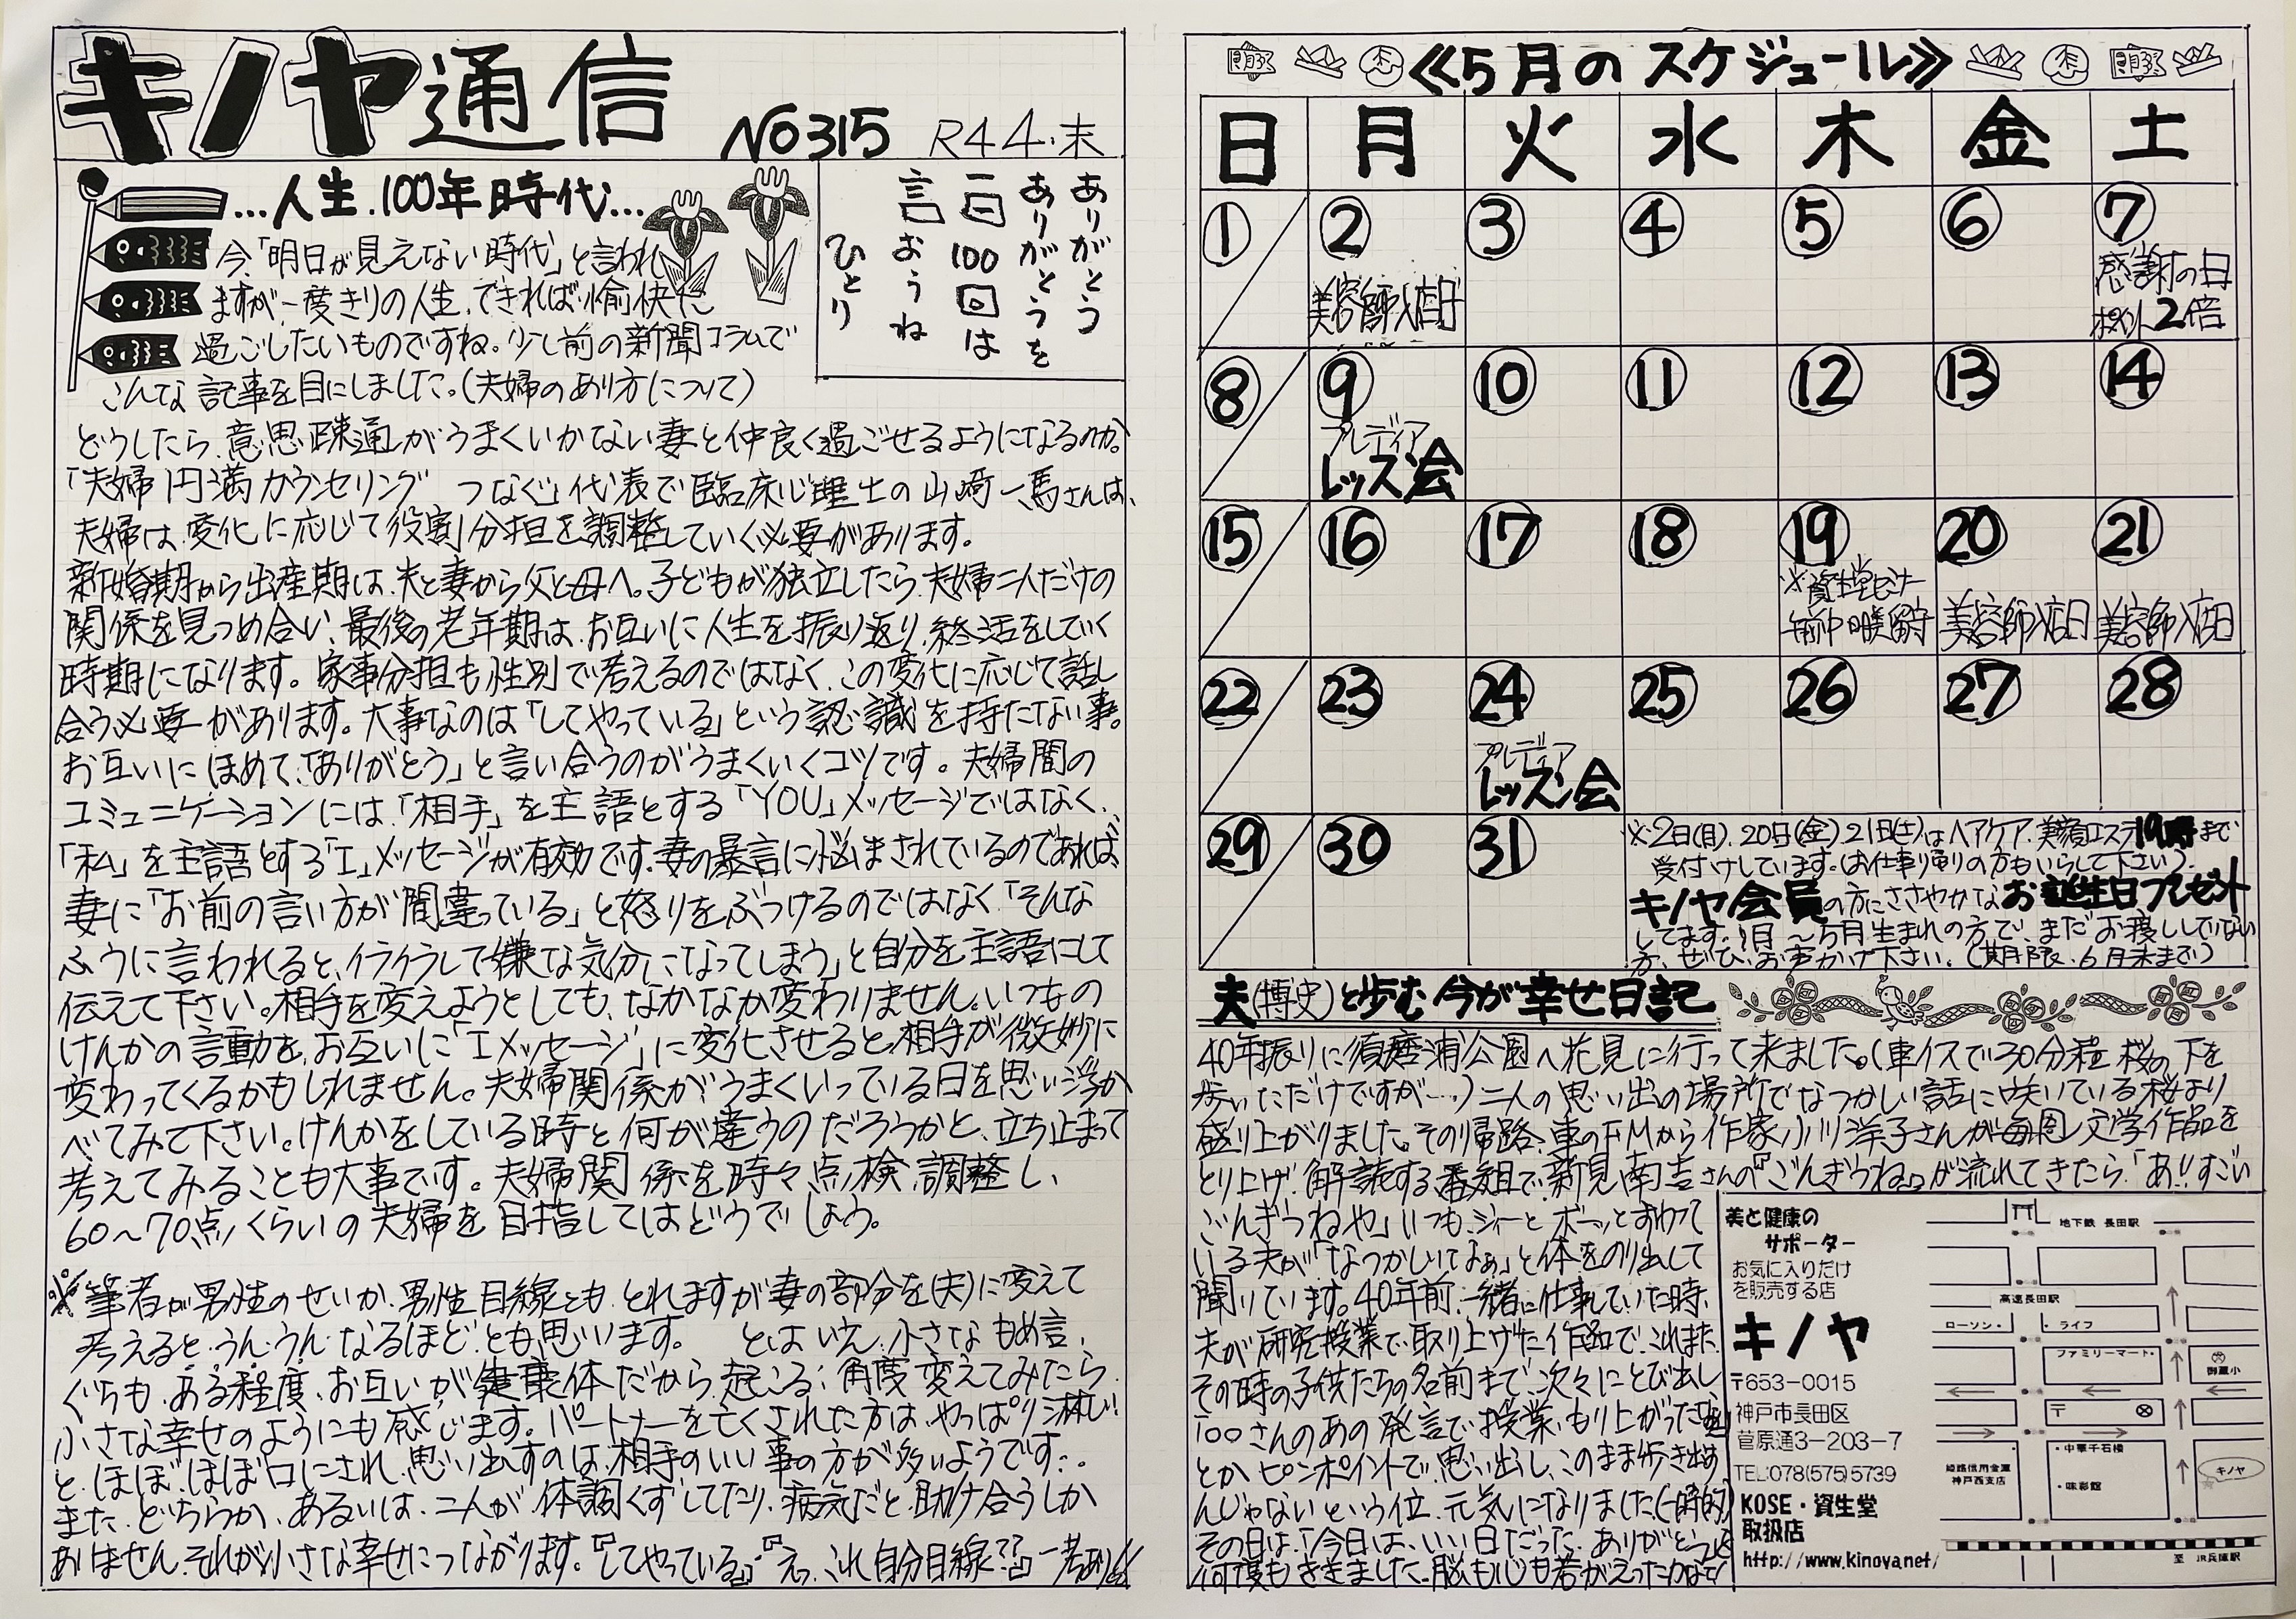 キノヤ通信
No315 R4 4.末
…人生100年時代…
ありがとう
ありがとうを
一日100回は
言おうね
ひとり
今、「明日が見えない時代」と言われ
ますが一度きりの人生、できれば愉快に
過ごしたいものですね。少し前の新聞コラムで
こんな記事を目にしました。(夫婦のあり方について)
どうしたら、意思疎通がうまくいかない妻と仲良く過ごせるようになるのか。
「夫婦円満カウンセリング つなぐ」代表で臨床心理士の山﨑一馬さんは、
夫婦は、変化に応じて役割分担を調整していく必要があります。
新婚期から出産期は、夫と妻から父と母へ。子どもが独立したら、夫婦二人だけの
関係を見つめ合い、最後の老年期は、お互いに人生を振り返り、終活をしていく
時期になります。家事分担も性別で考えるのではなく、この変化に応じて話し
合う必要があります。大事なのは「してやっている」という認識を持たない事。
お互いにほめて、「ありがとう」と言い合うのがうまくいくコツです。夫婦間の
コミュニケーションには「相手」を主語とする「YOU」メッセージではなく、
「私」を主語とする「I」メッセージが有効です。妻の暴言に悩まされているのであれば、
妻に「お前の言い方が間違っている」と怒りをぶつけるのではなく「そんな
ふうに言われると、イライラして嫌な気分になってしまう」と自分を主語にして
伝えて下さい。相手を変えようとしても、なかなか変わりません。いつもの
けんかの言動を、お互いに「Iメッセージ」に変化させると、相手が微妙に
変わってくるかもしれません。夫婦関係がうまくいっている日を思い浮か
べてみて下さい。けんかをしている時と何が違うのだろうかと、立ち止まって
考えてみることも大事です。夫婦関係を時々点検、調整し、
60〜70点くらいの夫婦を目指してはどうでしょう。
※筆者が男性のせいか、男性目線とも、とれますが妻の部分を(夫)に変えて
考えると、うん、うん、なるほど、とも思います。 とはいえ、小さなもめ言、
ぐちも、ある程度、お互いが健康体だから起こる、角度変えてみたら、
小さな幸せのようにも感じます。パートナーを亡くされた方は、やっぱり淋しい!
と、ほぼ、ほぼ口にされ、思い出すのは、相手のいい事の方が多いようです…
また、どちらか、あるいは、二人が、体調くずしてたり、病気だと助け合うしか
ありません。それが小さな幸せにつながります。『してやっている』・『えっ、これ自分目線??』一考あり!!
《5月のスケジュール》
日 月 火 水 木 金 土
1 2 3 4 5 6 7
美容師入店日
感謝の日
ポイント2倍
8 9 10 11 12 13 14
プレディア
レッスン会
15 16 17 18 19 20 21
※資生堂セミナー
午前中 留守
美容師入店日
美容師入店日
22 23 24 25 26 27 28
プレディア
レッスン会
29 30 31
※2日(月)、20日(金)、21日(土)はヘアケア、美顔エステ19時まで
受付けしています。(お仕事帰りの方もいらして下さい)
キノヤ会員の方にささやかなお誕生日プレゼント
してます。1月〜5月生まれの方で、まだお渡ししていない
方、ぜひ、お声かけ下さい。(期限、6月末まで)
夫(博史)と歩む今が幸せ日記
40年振りに須磨浦公園へ花見に行って来ました。(車イスで30分程、桜の下を
歩いただけですが…)二人の思い出の場所でなつかしい話に咲いている桜より
盛り上がりました。その帰路、車のFMから作家、小川洋子さんが毎週、文学作品を
とり上げ、解説する番組で、新見南吉さんの『ごんぎつね』が流れてきたら「あ!!すごい
ごんぎつねや」いつも、ジィーとボーッとすわって
いる夫が「なつかしいてなぁ」と体をのり出して
聞いています。40年前、一緒に仕事していた時、
夫が研究授業で取り上げた作品で、これまた、
その時の子供たちの名前まで、次々にとび出し、
「○○さんのあの発言で授業、もり上がった」
とか、ピンポイントで思い出し、このまま歩き出す
んじゃないという位、元気になりました(一時的)
その日は、「今日は、いい日だった、ありがとう」と
何度もききました。脳も心も若がえったかなぁ!
美と健康の
サポーター
お気に入りだけ
を販売する店
キノヤ
〒653-0015
神戸市長田区
菅原通3-203-7
TEL:078(575)5739
KOSE・資生堂
取扱店
http://www.kinoya.net/
地下鉄 長田駅
高速長田駅
ローソン・
・ライフ
ファミリーマート・
御蔵小
〒
・中華千石楼
姫路信用金庫
神戸西支店
・味彩館
キノヤ
至 JR兵庫駅